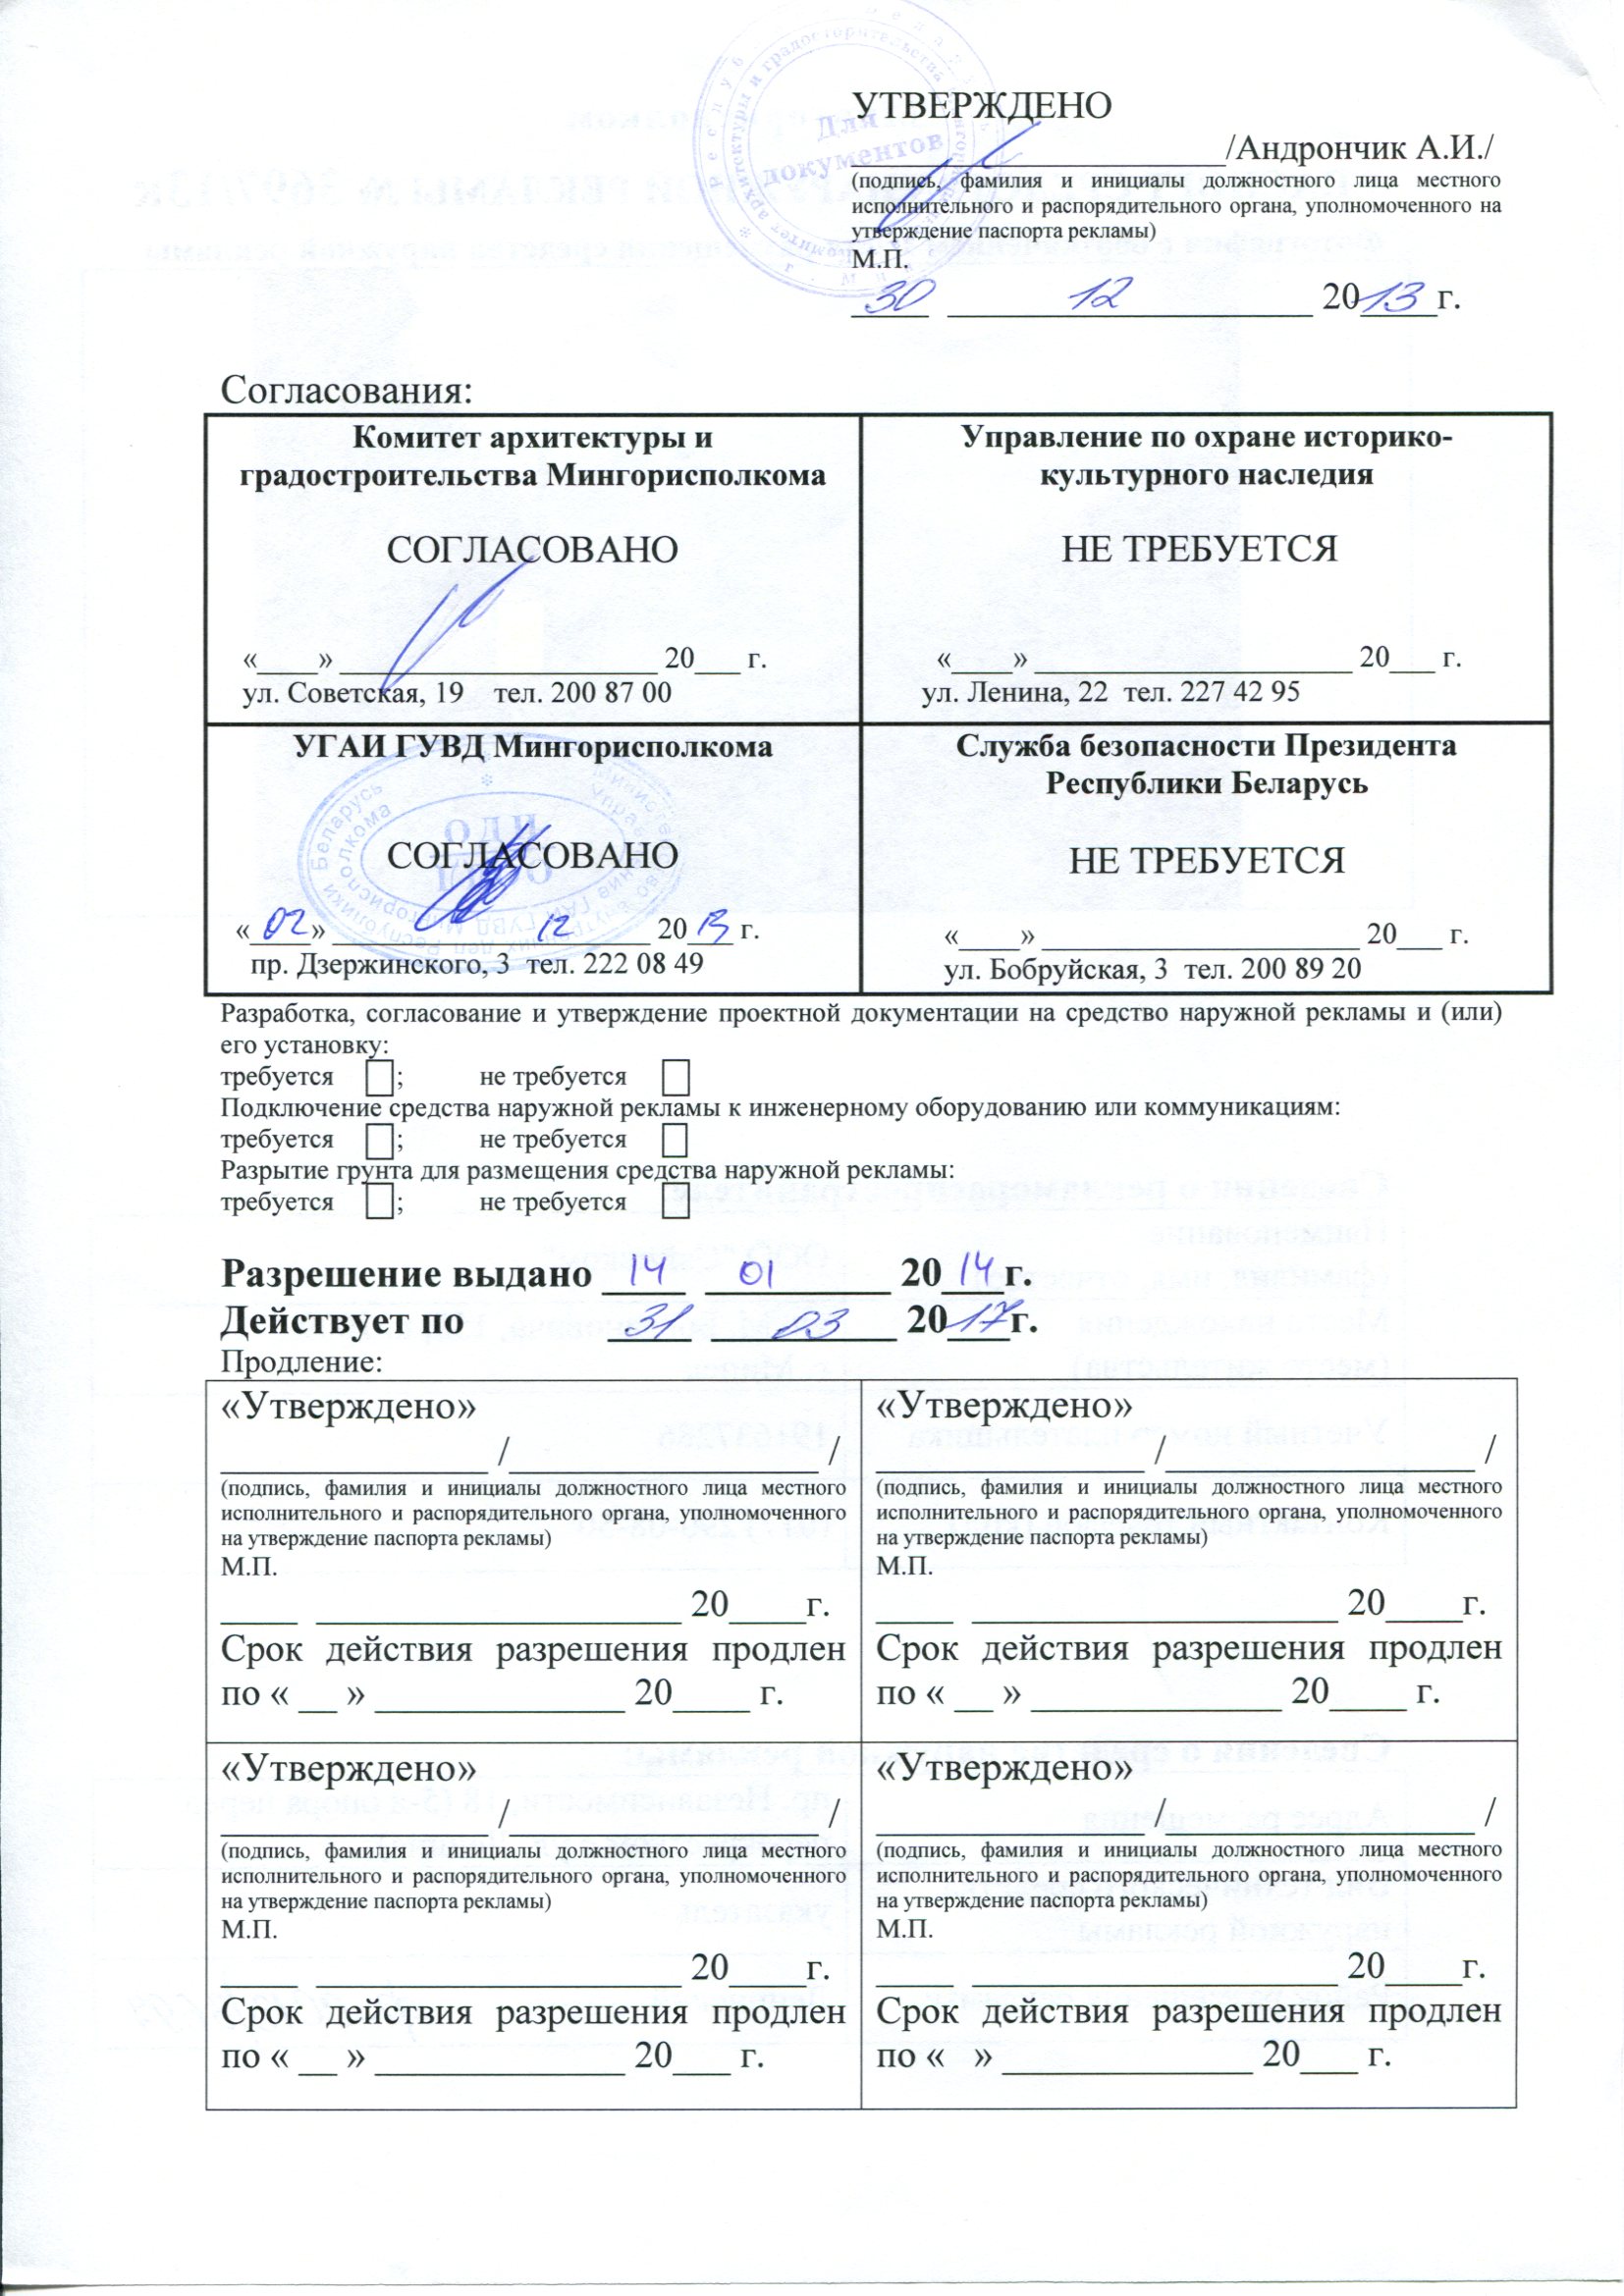 УТВЕРЖДЕНО
/Андрончик А.И./
(подпись, фамилия и инициалы должностного лица местного
исполнительного и распорядительного органа, уполномоченного на
утверждение паспорта рекламы)
М.П.
30 12 2013г.
Для
документов
Согласования:
Комитет архитектуры и
градостроительства Мингорисполкома
СОГЛАСОВАНО
«____» _____________________ 20___ г.
ул. Советская, 19 тел. 200 87 00
Управление по охране историко-
культурного наследия
НЕ ТРЕБУЕТСЯ
«____» _____________________ 20___ г.
ул. Ленина, 22 тел. 227 42 95
УГАИ ГУВД Мингорисполкома
СОГЛАСОВАНО
«02» 12 2013 г.
пр. Дзержинского, 3 тел. 222 08 49
Служба безопасности Президента
Республики Беларусь
НЕ ТРЕБУЕТСЯ
«____» _____________________ 20___ г.
ул. Бобруйская, 3 тел. 200 89 20
Разработка, согласование и утверждение проектной документации на средство наружной рекламы и (или)
его установку:
требуется ; не требуется
Подключение средства наружной рекламы к инженерному оборудованию или коммуникациям:
требуется ; не требуется
Разрытие грунта для размещения средства наружной рекламы:
требуется ; не требуется
Разрешение выдано 14 01 2014г.
Действует по 31 03 2017г.
Продление:
«Утверждено»
______________ /________________ /
(подпись, фамилия и инициалы должностного лица местного
исполнительного и распорядительного органа, уполномоченного
на утверждение паспорта рекламы)
М.П.
____ ___________________ 20____г.
Срок действия разрешения продлен
по « __ » _____________ 20____ г.
«Утверждено»
______________ /________________ /
(подпись, фамилия и инициалы должностного лица местного
исполнительного и распорядительного органа, уполномоченного
на утверждение паспорта рекламы)
М.П.
____ ___________________ 20____г.
Срок действия разрешения продлен
по « __ » _____________ 20____ г.
«Утверждено»
______________ /________________ /
(подпись, фамилия и инициалы должностного лица местного
исполнительного и распорядительного органа, уполномоченного
на утверждение паспорта рекламы)
М.П.
____ ___________________ 20____г.
Срок действия разрешения продлен
по « __ » _____________ 20___ г.
«Утверждено»
______________ /________________ /
(подпись, фамилия и инициалы должностного лица местного
исполнительного и распорядительного органа, уполномоченного
на утверждение паспорта рекламы)
М.П.
____ ___________________ 20____г.
Срок действия разрешения продлен
по « » _____________ 20___ г.